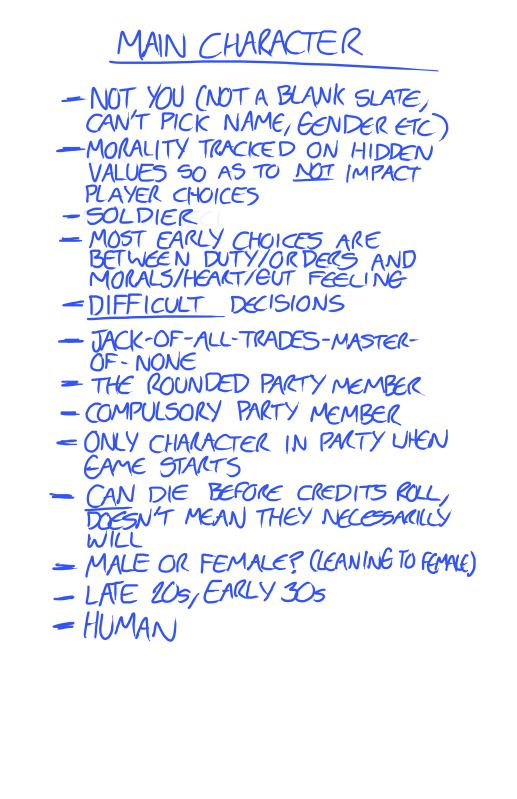 MAIN CHARACTER
- NOT YOU (NOT A BLANK SLATE,
CAN'T PICK NAME, GENDER ETC)
- MORALITY TRACKED ON HIDDEN
VALUES SO AS TO NOT IMPACT
PLAYER CHOICES
- SOLDIER
- MOST EARLY CHOICES ARE
BETWEEN DUTY/ORDERS AND
MORALS/HEART/GUT FEELING
- DIFFICULT DECISIONS
- JACK-OF-ALL-TRADES-MASTER-
OF-NONE
- THE ROUNDED PARTY MEMBER
- COMPULSORY PARTY MEMBER
- ONLY CHARACTER IN PARTY WHEN
GAME STARTS
- CAN DIE BEFORE CREDITS ROLL,
DOESN'T MEAN THEY NECESSARILLY
WILL
- MALE OR FEMALE? (LEANING TO FEMALE)
- LATE 20s, EARLY 30s
- HUMAN